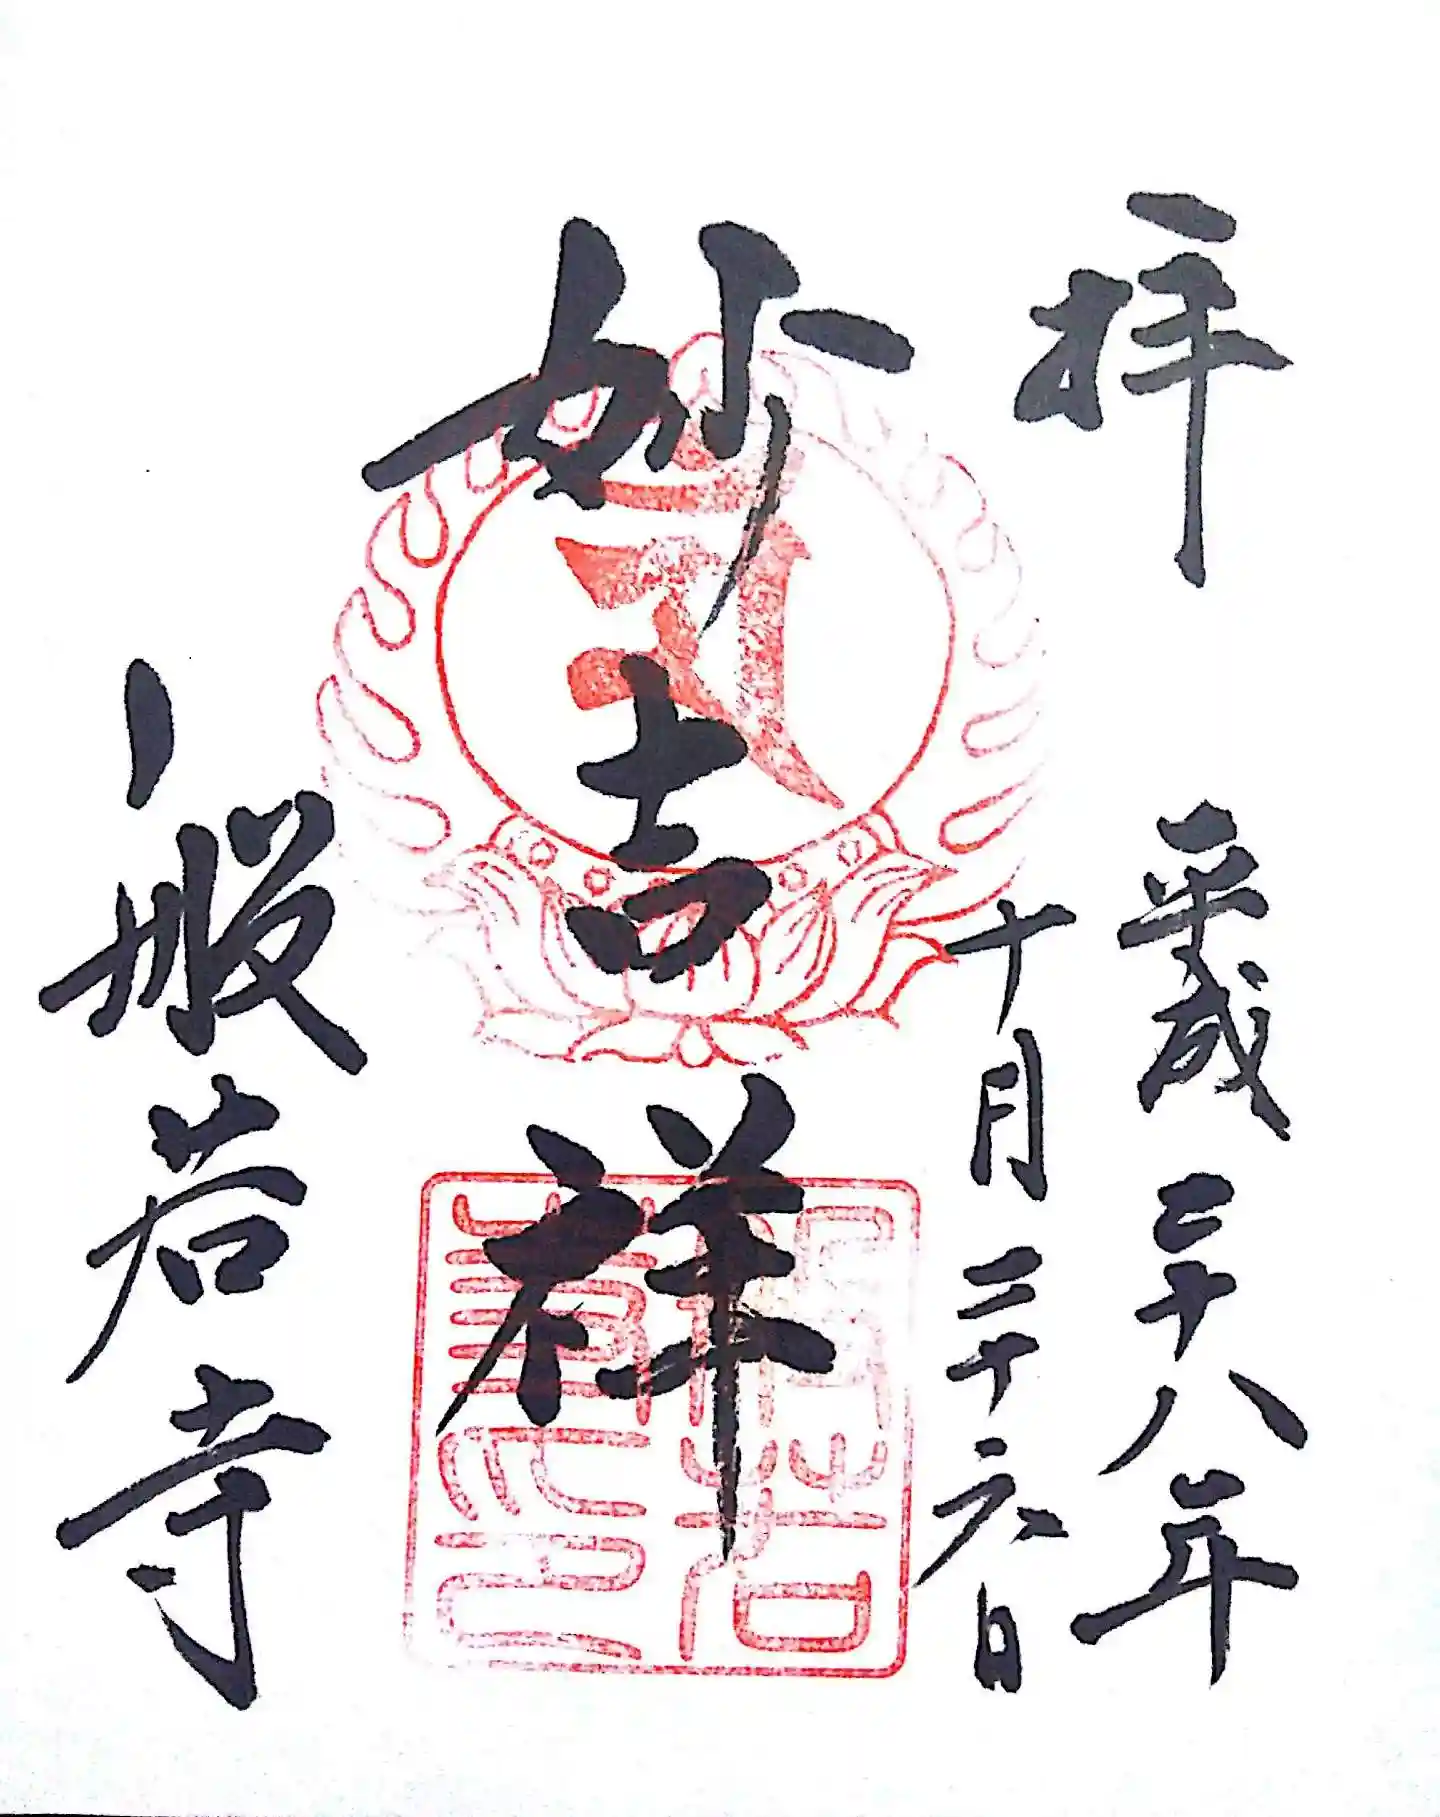 拝
平成二十八年
十月二十六日
妙吉祥
般若寺